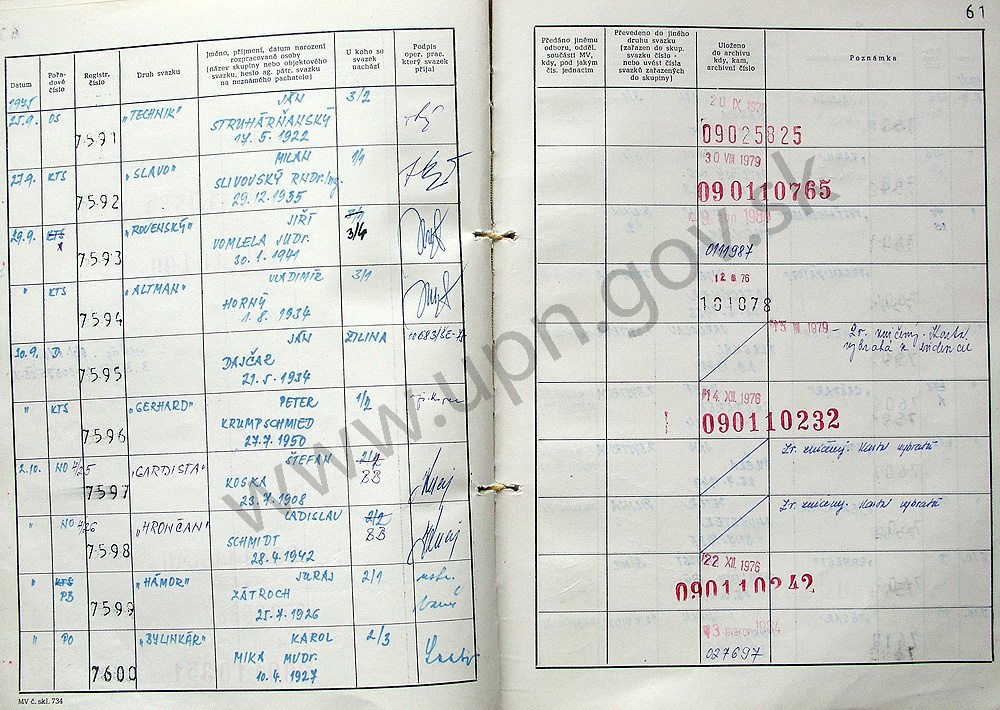 61
Datum
Pořadové číslo
Registr. číslo
Druh svazku
Jméno, příjmení, datum narození
rozpracované osoby
(název skupiny nebo objektového
svazku, heslo ag. pátr. svazku
na neznámého pachatele)
U koho se
svazek
nachází
Podpis
oper. prac.
který svazek
přijal
Předáno jinému
odboru, odděl.
součásti MV,
kdy, pod jakým
čís. jednacím
Převedeno do jiného
druhu svazku
(zařazen do skup.
svazku číslo -
nebo uvést čísla
svazků zařazených
do skupiny)
Uloženo
do archivu
kdy, kam,
archivní číslo
Poznámka
1975
25.9. OS 7591 „TECHNIK" JÁN 3/2
STRUHÁRŇANSKÝ
17. 5. 1922
09025825
27.9. KTS 7592 „SLAVO" MILAN 1/1
SLIVOVSKÝ RNDr/Ing.
29.12.1935
30 VIII 1979
090110765
29.9. KTS 7593 „ROVENSKÝ" JIŘÍ 3/4
VOMLELA JUDr.
30. 1. 1941
0111987
" KTS 7594 „ALTMAN" VLADIMÍR 3/1
HORNÝ
1. 8. 1934
76
101078
30.9. D 7595 JÁN ŽILINA
DAJČAR
21. 5. 1934
1979 - Zv. zničený. Karta
vybratá z evidencie
" KTS 7596 „GERHARD" PETER 1/2
KRUMPSCHMIED
27.7.1950
14. XII. 1976
090110232
2.10. NO 4/25 7597 „GARDISTA" ŠTEFAN BB
KOSKA
23.7.1908
Zv. zničený. Kartot vybratá
" NO 4/26 7598 „HRONČAN" LADISLAV 2/2 BB
SCHMIDT
28.4.1942
Zv. zničený. Kartot vybratá
" KTS PZ 7599 „HÁMOR" JURAJ 2/1
ZÁTROCH
25.7.1926
22 XII. 1976
090110242
" PO 7600 „BYLINKÁR" KAROL 2/3
MIKA MUDr.
10.4.1927
027697
MV č. skl. 734
www.upn.gov.sk